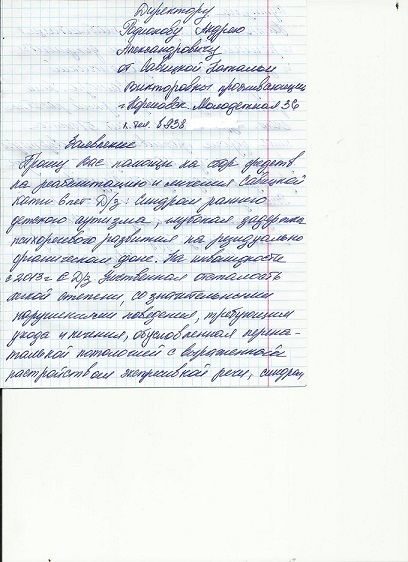 Директору
Андрею
Александровичу
от Савицкой Натальи
Викторовны проживающей
г Кореновск. Молодежная 36
к. тел. 8938
Заявление
Прошу Вас помощи на сбор средств
на реабилитацию и лечения Савицкой
Кати 6 лет Д/з: Синдром раннего
детского аутизма, глубокая задержка
психоречевого развития на резидуально
органическом фоне. На инвалидности
с 2013 г с Д/з Умственная отсталость
легкой степени, со значительными
нарушениями поведения, требующими
ухода и лечения, обусловленная перина-
тальной патологией с выраженной
растройством экспрессивной речи, синдром